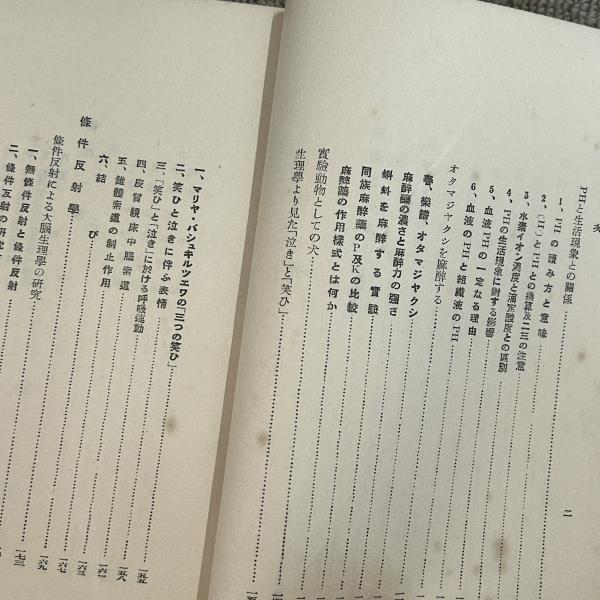 二
PHと生活現象との關係
1、PHの讀み方と意味
2、(H·)とPHとの換算及二三の注意
3、水素イオン濃度と滴定酸度との區別
4、PHの生活現象に對する影響
5、血液PHの一定なる理由
6、血液のPHと組織液のPH
オタマジヤクシを麻醉する
春、樂譜、オタマジヤクシ
麻醉藥の濃さと麻醉力の强さ
蝌蚪を麻醉する實驗
同族麻醉藥のP及Kの比較
麻醉藥の作用樣式とは何か
實驗動物としての犬
生理學より見た「泣き」と「笑ひ」
一、マリヤ・バシユキルツエワの「三つの笑ひ」
二、笑ひと泣きに伴ふ表情
三、「笑ひ」と「泣き」に於ける呼吸運動 一五五
四、皮質視床中腦索道 一五八
五、錐體索道の制止作用 一六一
六、結び 一六三
條件反射學 一六七
條件反射による大腦生理學の研究 一六九
一、無條件反射と條件反射 一七三
二、條件反射の研究